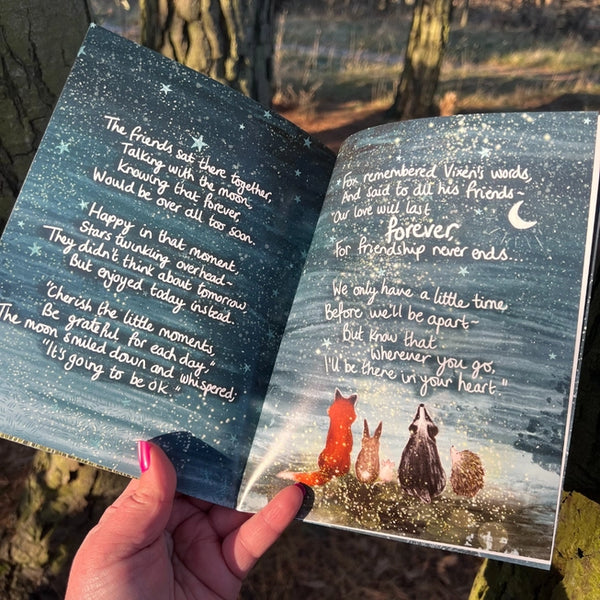 The friends sat there together,
Talking with the moon,
Knowing that forever,
Would be over all too soon.
Happy in that moment,
Stars twinkling overhead~
They didn't think about tomorrow,
But enjoyed today instead.
"Cherish the little moments,
Be grateful for each day,"
The moon smiled down and whispered;
"It's going to be ok."
Fox remembered Vixen's words,
And said to all his friends~
"Our love will last
forever,
For friendship never ends.
We only have a little time,
Before we'll be apart~
But know that
Wherever you go,
I'll be there in your heart."